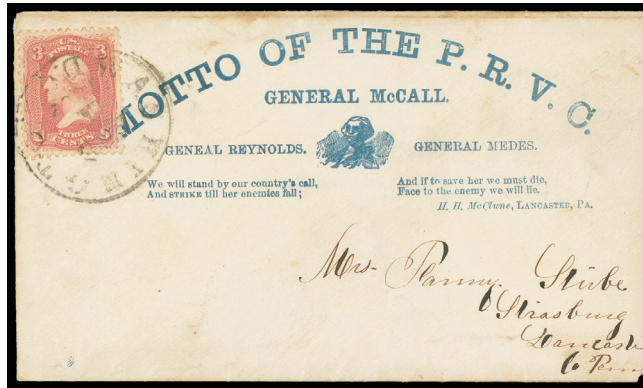 MOTTO OF THE P. R. V. C.
GENERAL McCALL.
GENEAL REYNOLDS. GENERAL MEDES.
We will stand by our country's call,
And STRIKE till her enemies fall;
And if to save her we must die,
Face to the enemy we will lie.
H. H. McClune, LANCASTER, PA.
3 3
U.S. POSTAGE
THREE
CENTS
Mrs. Fanny Stube
Strasburg
Lancaste
Co Penn